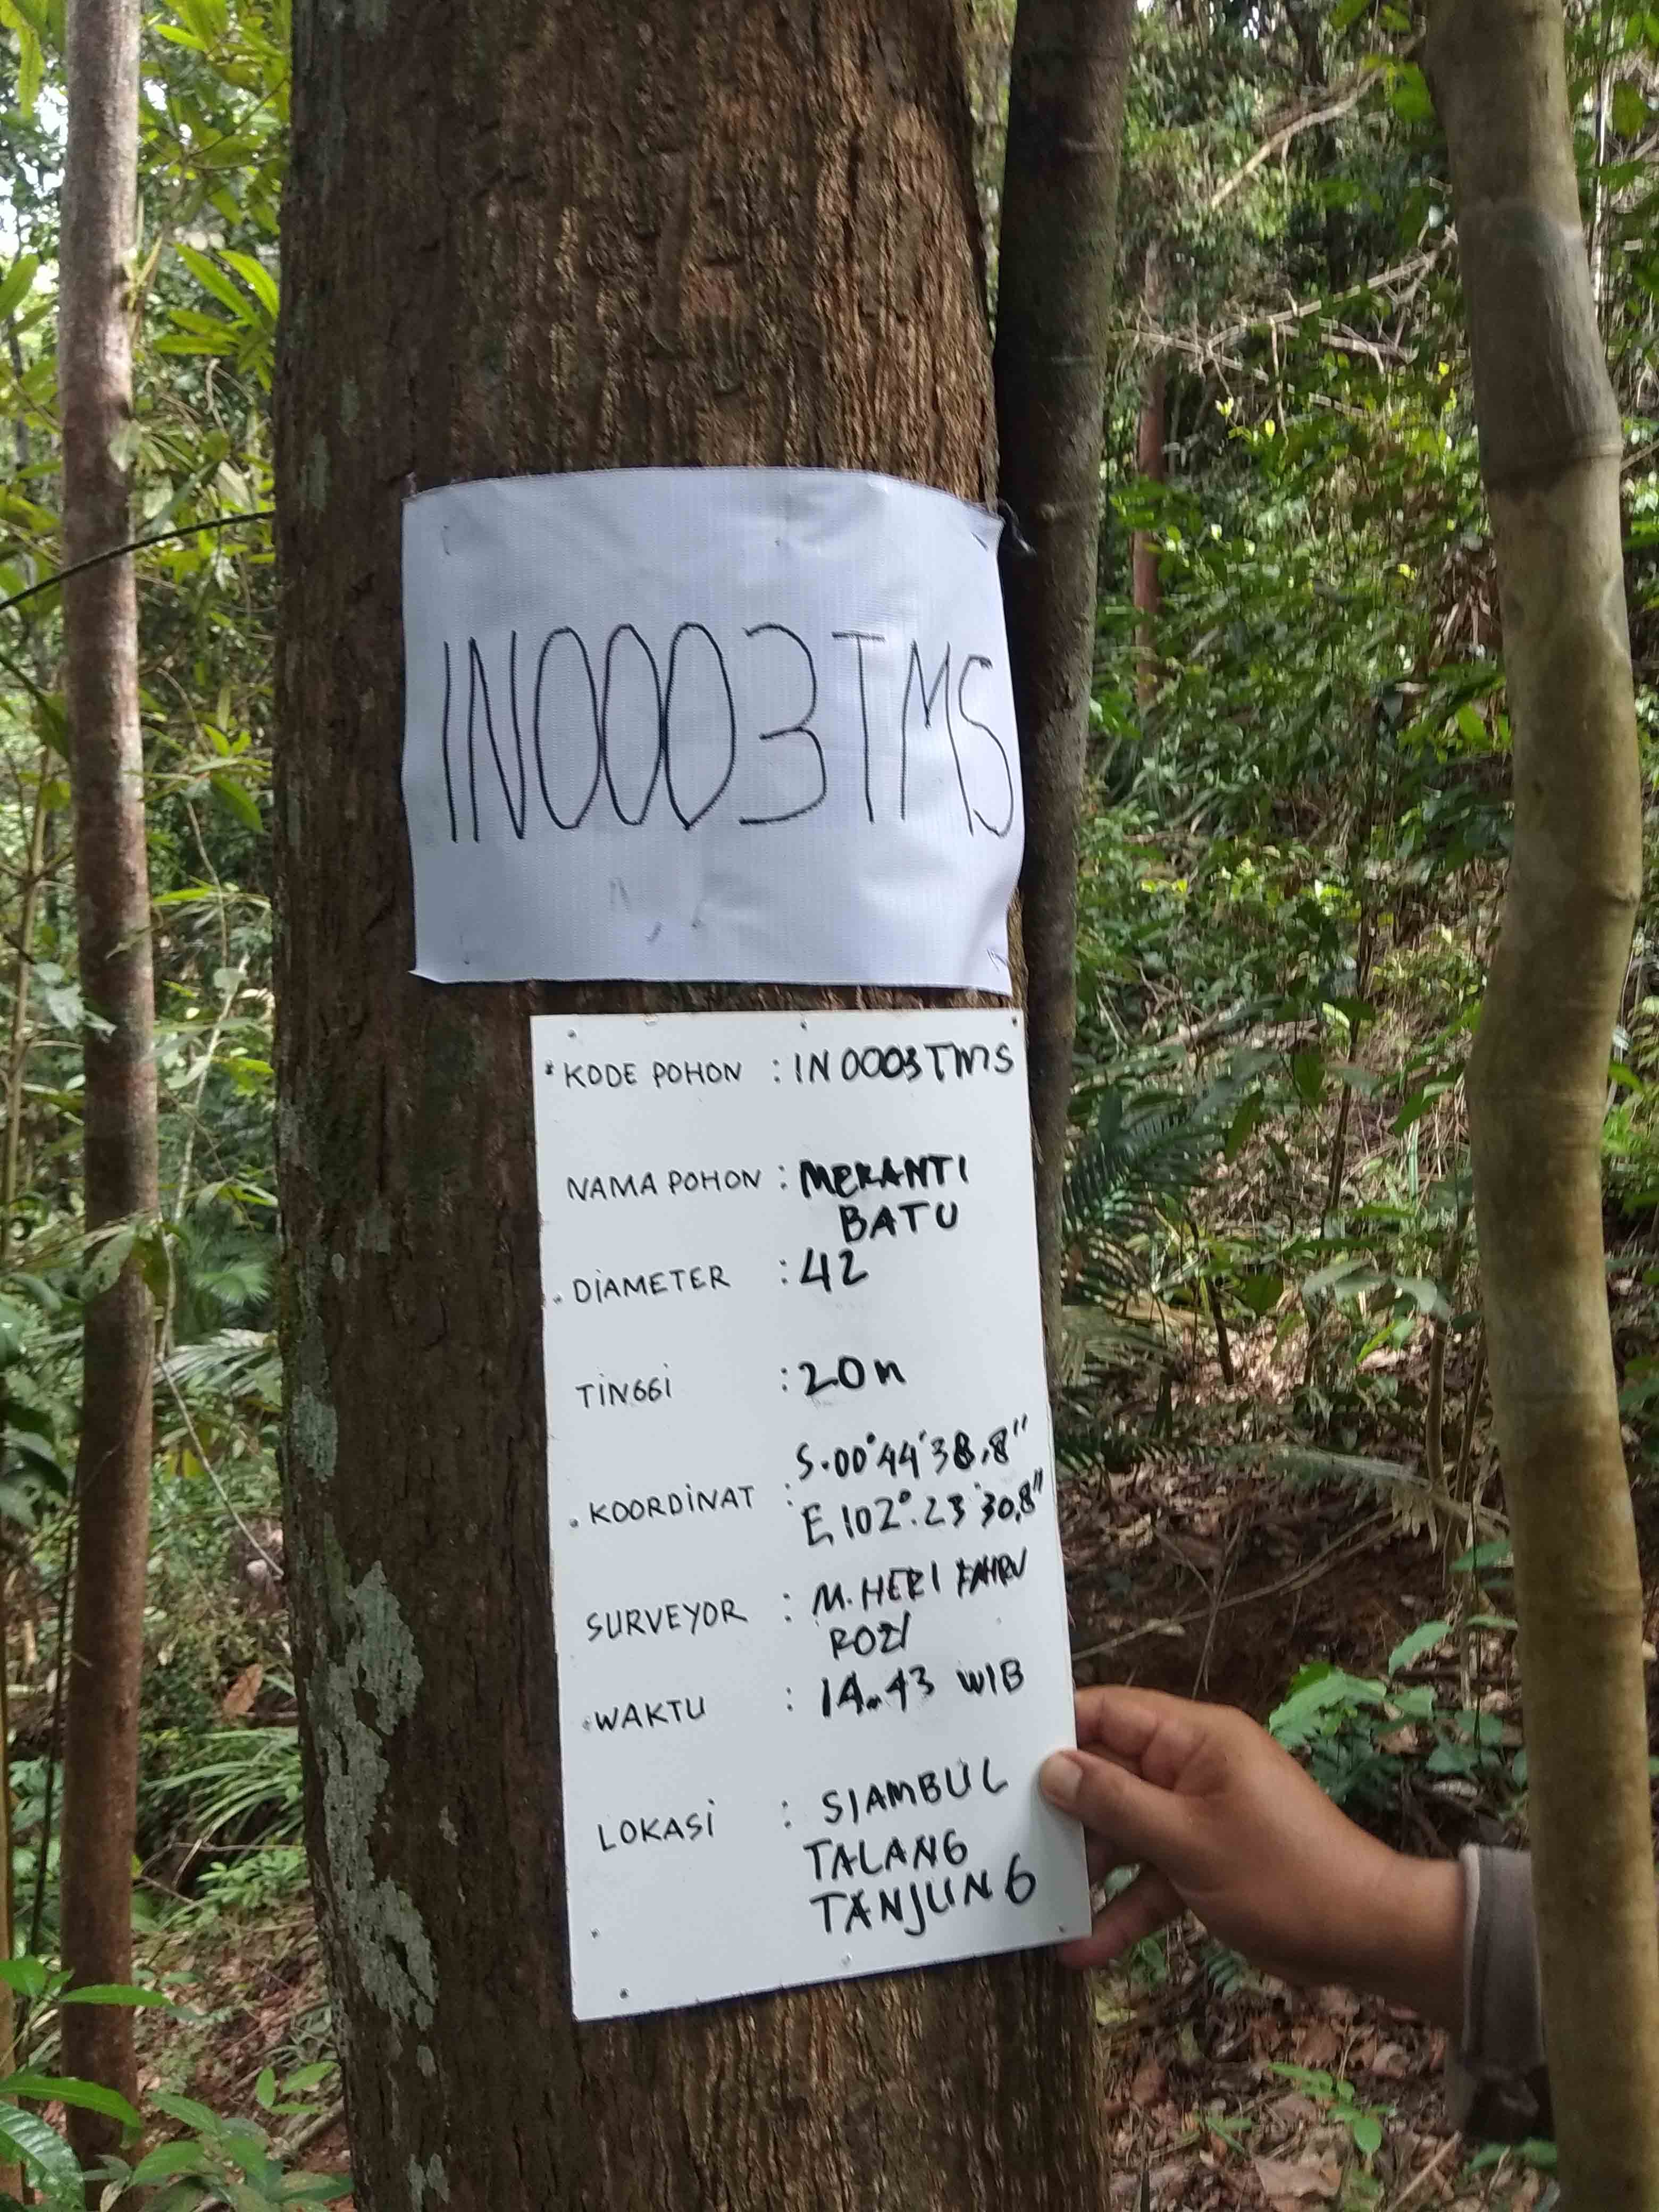 IN0003TMS
* KODE POHON : IN0003TMS
NAMA POHON : MERANTI
BATU
. DIAMETER : 42
TINGGI : 20m
S.00°44'38,8"
. KOORDINAT :
E 102°.23'30,8"
SURVEYOR : M.HERI FAHRU
ROZI
. WAKTU : 14..43 WIB
LOKASI : SIAMBUL
TALANG
TANJUNG